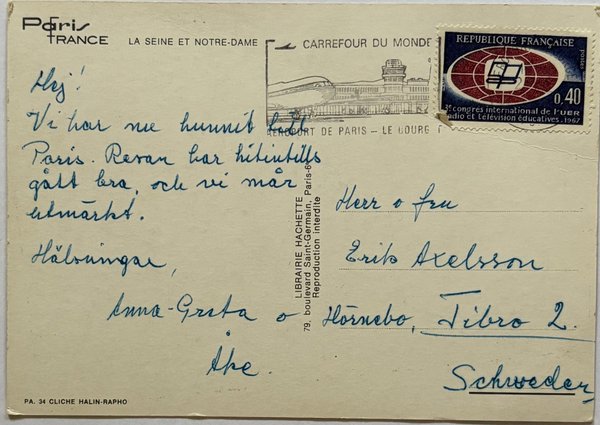 Paris
FRANCE
LA SEINE ET NOTRE-DAME
CARREFOUR DU MONDE
AEROPORT DE PARIS - LE BOURGET
RÉPUBLIQUE FRANÇAISE
postes
0,40
3e congrès international de l'UER
radio et télévision éducatives. 1967
Hej!
Vi har nu hunnit till
Paris. Resan har hitintills
gått bra, och vi mår
utmärkt.
Hälsningar,
Anna-Greta o
Åke.
LIBRAIRIE HACHETTE
79, boulevard Saint-Germain, Paris-6e
Reproduction interdite
Herr o fru
Erik Axelsson
Hörnebo, Tibro 2.
Schweden
PA. 34 CLICHE HALIN-RAPHO